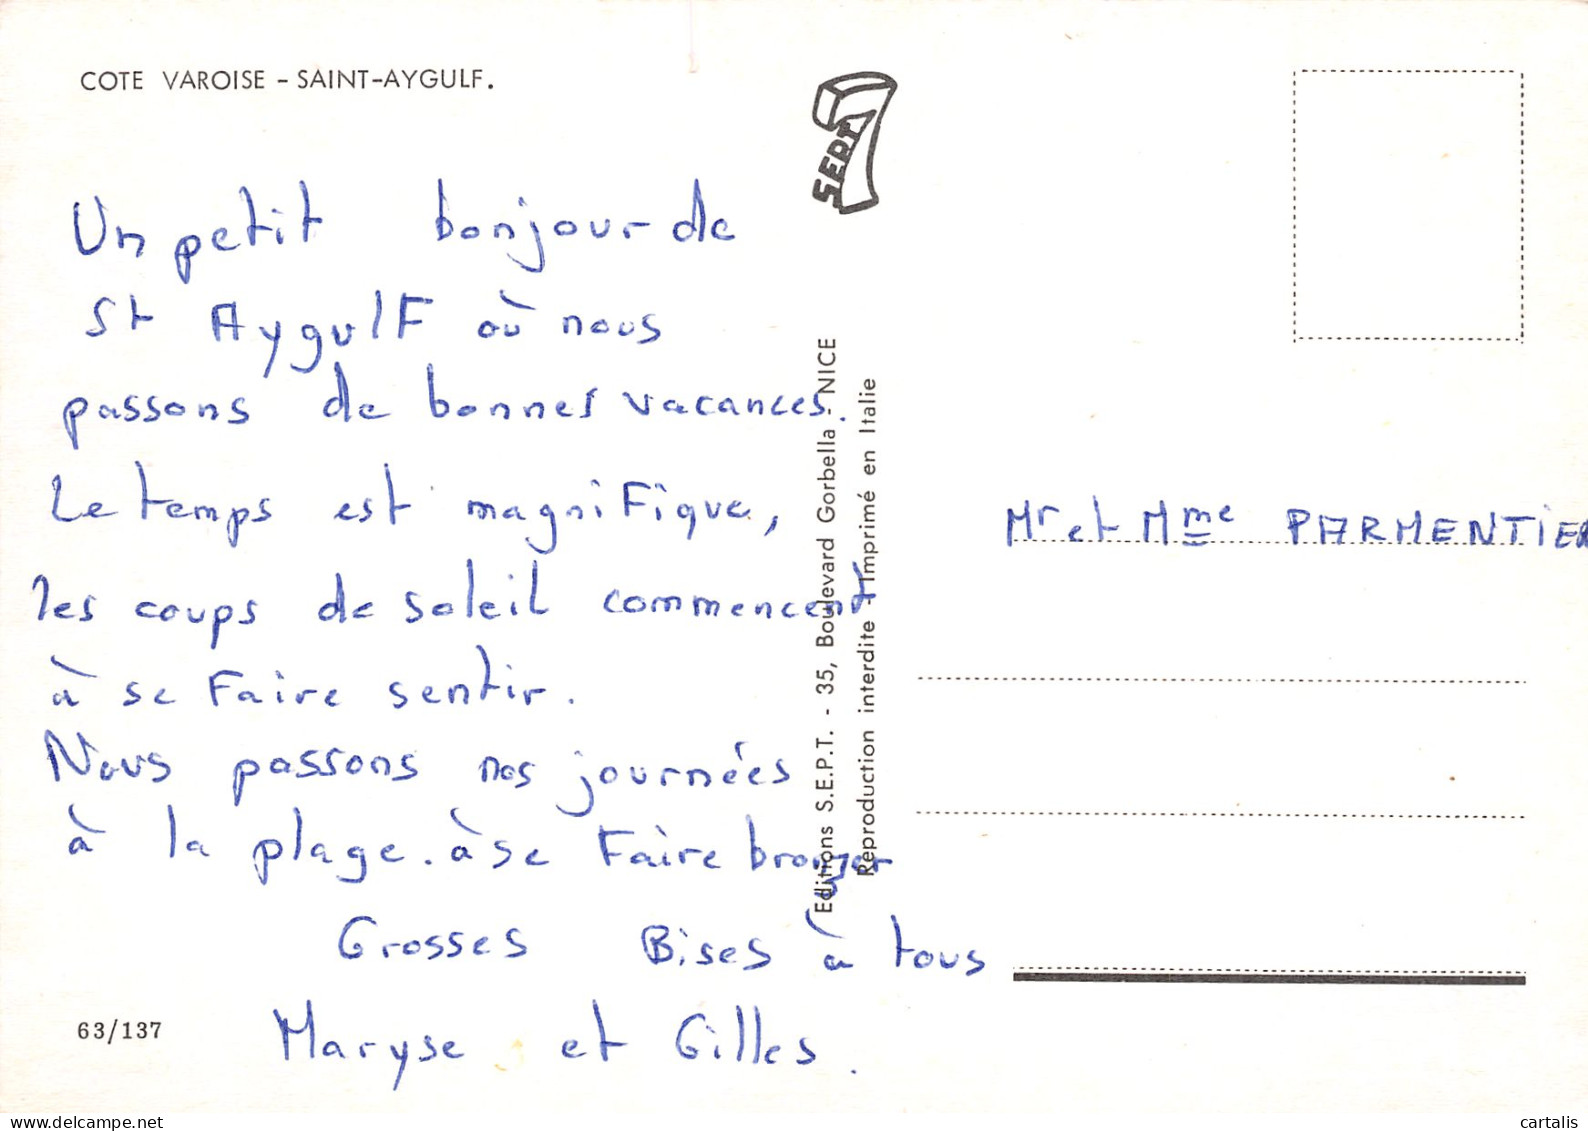 COTE VAROISE - SAINT-AYGULF.
SEPT
7
Un petit bonjour de
St Aygulf où nous
passons de bonnes vacances.
Le temps est magnifique,
les coups de soleil commencent
à se faire sentir.
Nous passons nos journées
à la plage. à se faire bronzer
Grosses Bises à tous
Maryse et Gilles.
63/137
Editions S.E.P.T. - 35, Boulevard Gorbella - NICE
Reproduction interdite - Imprimé en Italie
Mr et Mme PARMENTIER
www.delcampe.net
cartalis